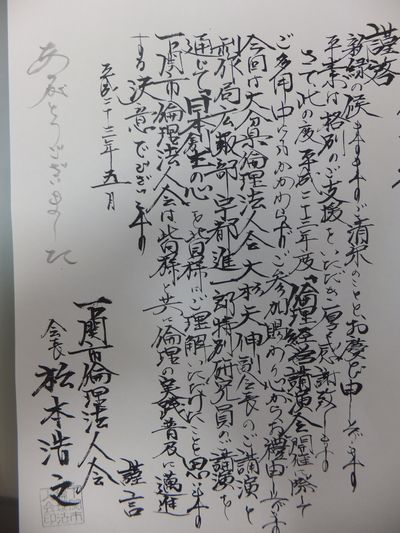 謹啓
新緑の候ますますご清栄のこととお慶び申し上げます
平素は格別のご支援をいただき厚く感謝致します
さて此の度平成二十三年度「倫理経営講演会」開催に際して
ご多用中にもかかわらずご参加賜わり心からお禮申し上げます
今回は大分県倫理法人会大杉天伸副会長のご講演と
制作局広報部宇都進一郎特別研究員の講演を
通じて日本創生の心を皆様にご理解いただけたことと思います
一関市倫理法人会は皆様と共に倫理の実践普及に邁進
する決意でございます
謹言
平成二十三年五月
一関市倫理法人会
会長 松本浩之
ありがとうございました